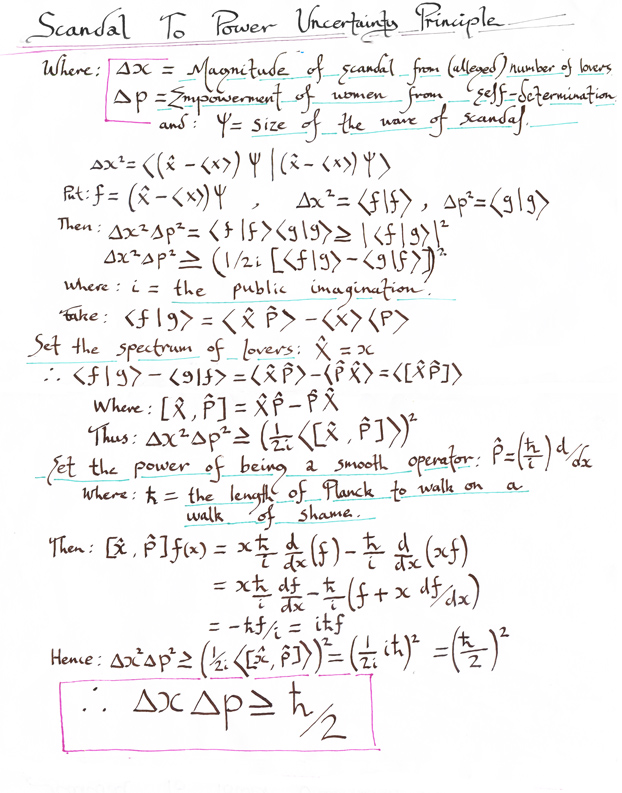 Scandal To Power Uncertainty Principle
Where: Δx = Magnitude of scandal from (alleged) number of lovers
Δp = Empowerment of women from self-determination
and: Ψ = size of the wave of scandal.
Δx² = ⟨(x̂ - ⟨x⟩) Ψ | (x̂ - ⟨x⟩) Ψ⟩
Put: f = (x̂ - ⟨x⟩) Ψ , Δx² = ⟨f|f⟩ , Δp² = ⟨g|g⟩
Then: Δx² Δp² = ⟨f|f⟩⟨g|g⟩ ≥ |⟨f|g⟩|²
Δx² Δp² ≥ (1/2i [⟨f|g⟩ - ⟨g|f⟩])²
where: i = the public imagination.
Take: ⟨f|g⟩ = ⟨x̂ p̂⟩ - ⟨x⟩⟨p⟩
Set the spectrum of lovers: x̂ = x
∴ ⟨f|g⟩ - ⟨g|f⟩ = ⟨x̂ p̂⟩ - ⟨p̂ x̂⟩ = ⟨[x̂ p̂]⟩
Where: [x̂, p̂] = x̂ p̂ - p̂ x̂
Thus: Δx² Δp² ≥ (1/2i ⟨[x̂, p̂]⟩)²
Let the power of being a smooth operator: p̂ = (ħ/i) d/dx
Where: ħ = the length of Planck to walk on a
walk of shame.
Then: [x̂, p̂] f(x) = x ħ/i d/dx (f) - ħ/i d/dx (xf)
= x ħ/i df/dx - ħ/i (f + x df/dx)
= -ħf/i = iħf
Hence: Δx² Δp² ≥ (1/2i ⟨[x̂, p̂]⟩)² = (1/2i iħ)² = (ħ/2)²
∴ Δx Δp ≥ ħ/2